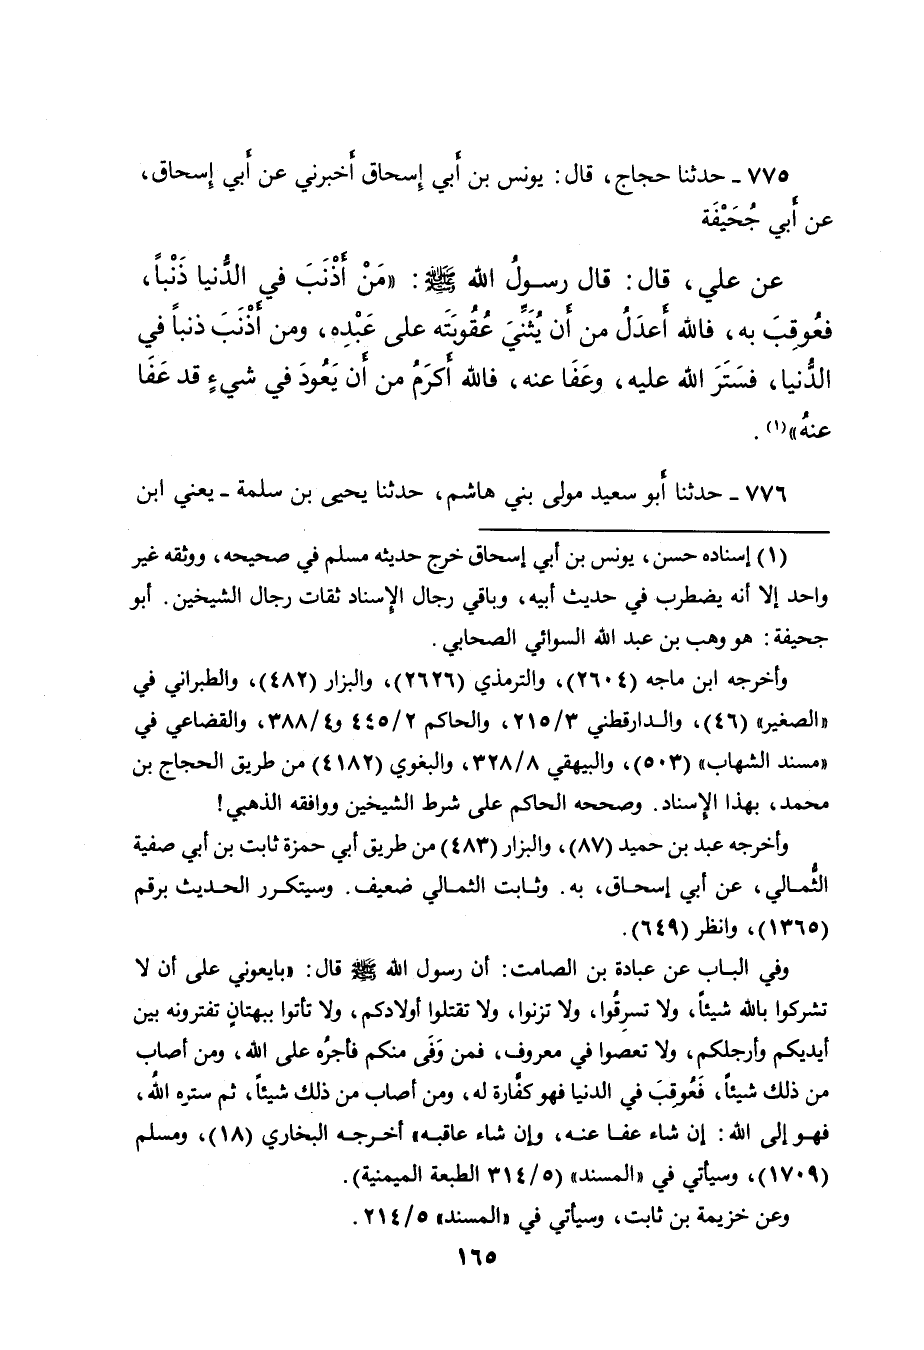 ٧٧٥ ـ حدثنا حجاج، قال: يونس بن أَبي إسحاق أَخبرني عن أَبي إسحاق،
عن أَبي جُحَيْفَة
عن علي، قال: قال رسولُ الله ﷺ: «مَنْ أَذْنَبَ في الدُّنيا ذَنْباً،
فعُوقِبَ به، فالله أَعدَلُ من أَن يُثَنِّيَ عُقُوبَتَه على عَبْدِه، ومن أَذْنَبَ ذنباً في
الدُّنيا، فسَتَرَ الله عليه، وعَفَا عنه، فالله أَكرَمُ من أَن يَعُودَ في شيءٍ قد عَفَا
عنهُ»(١).
٧٧٦ ـ حدثنا أَبو سعيد مولى بني هاشم، حدثنا يحيى بن سلمة ـ يعني ابن
(١) إسناده حسن، يونس بن أبي إسحاق خرج حديثه مسلم في صحيحه، ووثقه غير
واحد إلا أنه يضطرب في حديث أبيه، وباقي رجال الإسناد ثقات رجال الشيخين. أبو
جحيفة: هو وهب بن عبد الله السوائي الصحابي.
وأخرجه ابن ماجه (٢٦٠٤)، والترمذي (٢٦٢٦)، والبزار (٤٨٢)، والطبراني في
«الصغير» (٤٦)، والدارقطني ٢١٥/٣، والحاكم ٤٤٥/٢ و٣٨٨/٤، والقضاعي في
«مسند الشهاب» (٥٠٣)، والبيهقي ٣٢٨/٨، والبغوي (٤١٨٢) من طريق الحجاج بن
محمد، بهذا الإسناد. وصححه الحاكم على شرط الشيخين ووافقه الذهبي!
وأخرجه عبد بن حميد (٨٧)، والبزار (٤٨٣) من طريق أبي حمزة ثابت بن أبي صفية
الثُّمالي، عن أبي إسحاق، به. وثابت الثمالي ضعيف. وسيتكرر الحديث برقم
(١٣٦٥)، وانظر (٦٤٩).
وفي الباب عن عبادة بن الصامت: أن رسول الله ﷺ قال: «بايعوني على أن لا
تشركوا بالله شيئاً، ولا تسرِقُوا، ولا تزنوا، ولا تقتلوا أولادكم، ولا تأتوا ببهتانٍ تفترونه بين
أيديكم وأرجلكم، ولا تعصوا في معروف، فمن وَفَى منكم فأجرُه على الله، ومن أصاب
من ذلك شيئاً، فَعُوقِبَ في الدنيا فهو كفَّارة له، ومن أصاب من ذلك شيئاً، ثم ستره اللهُ،
فهو إلى الله: إن شاء عفا عنه، وإن شاء عاقبه» أخرجه البخاري (١٨)، ومسلم
(١٧٠٩)، وسيأتي في «المسند» (٣١٤/٥ الطبعة الميمنية).
وعن خزيمة بن ثابت، وسيأتي في «المسند» ٢١٤/٥.
١٦٥